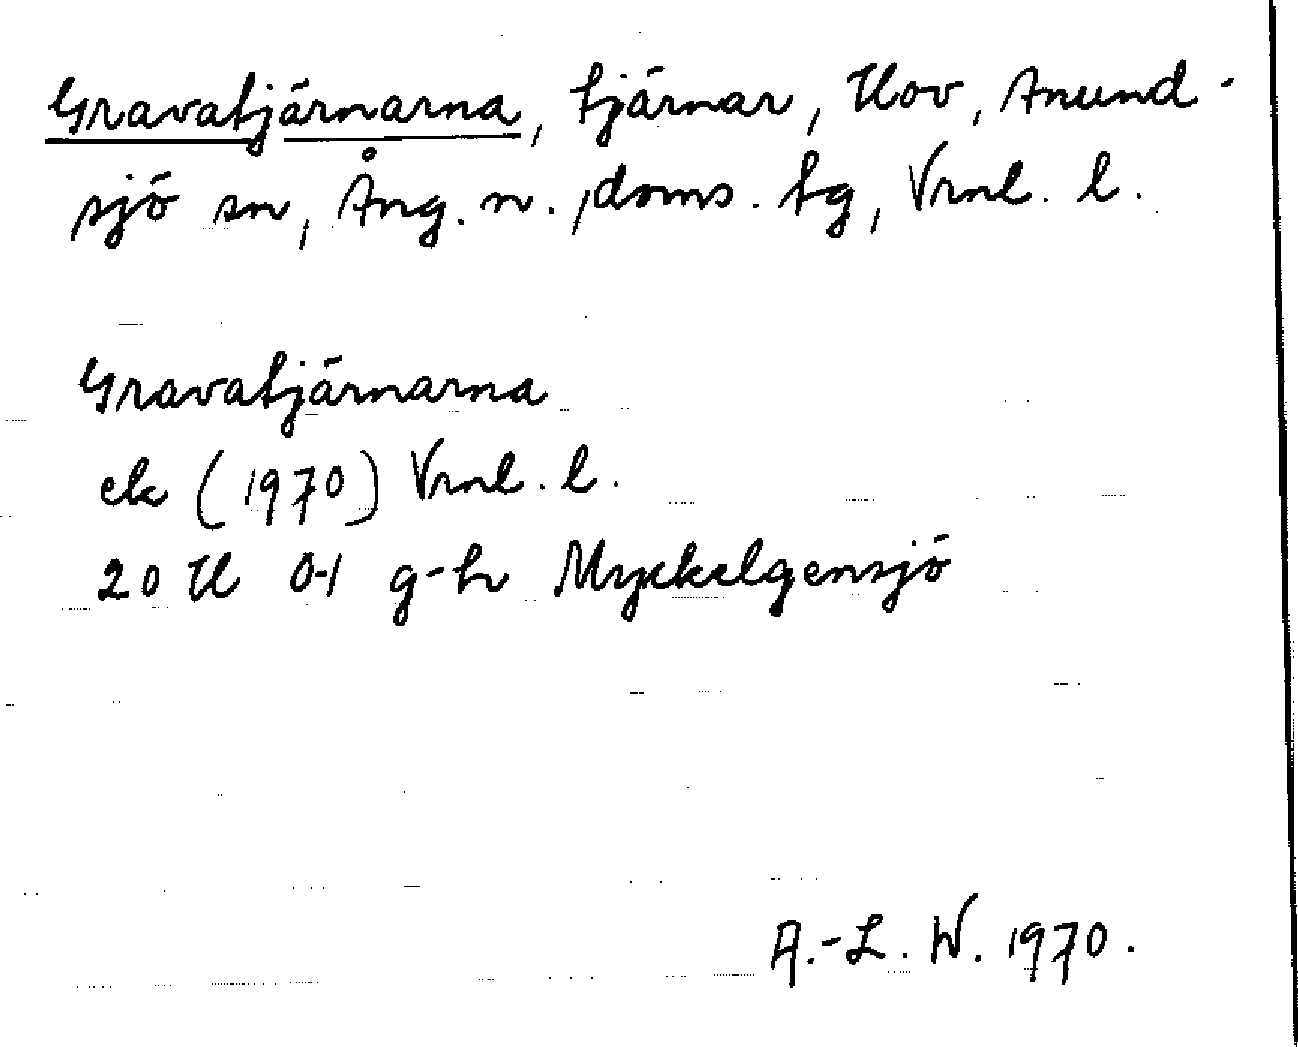 Gravatjärnarna, tjärnar, Hov, Anund-
sjö sn, Ång. n., doms. tg, Vrnl. l.
Gravatjärnarna
ek (1970) Vrnl. l.
20 H 0-1 g-h Myckelgensjö
A.-L. W. 1970.